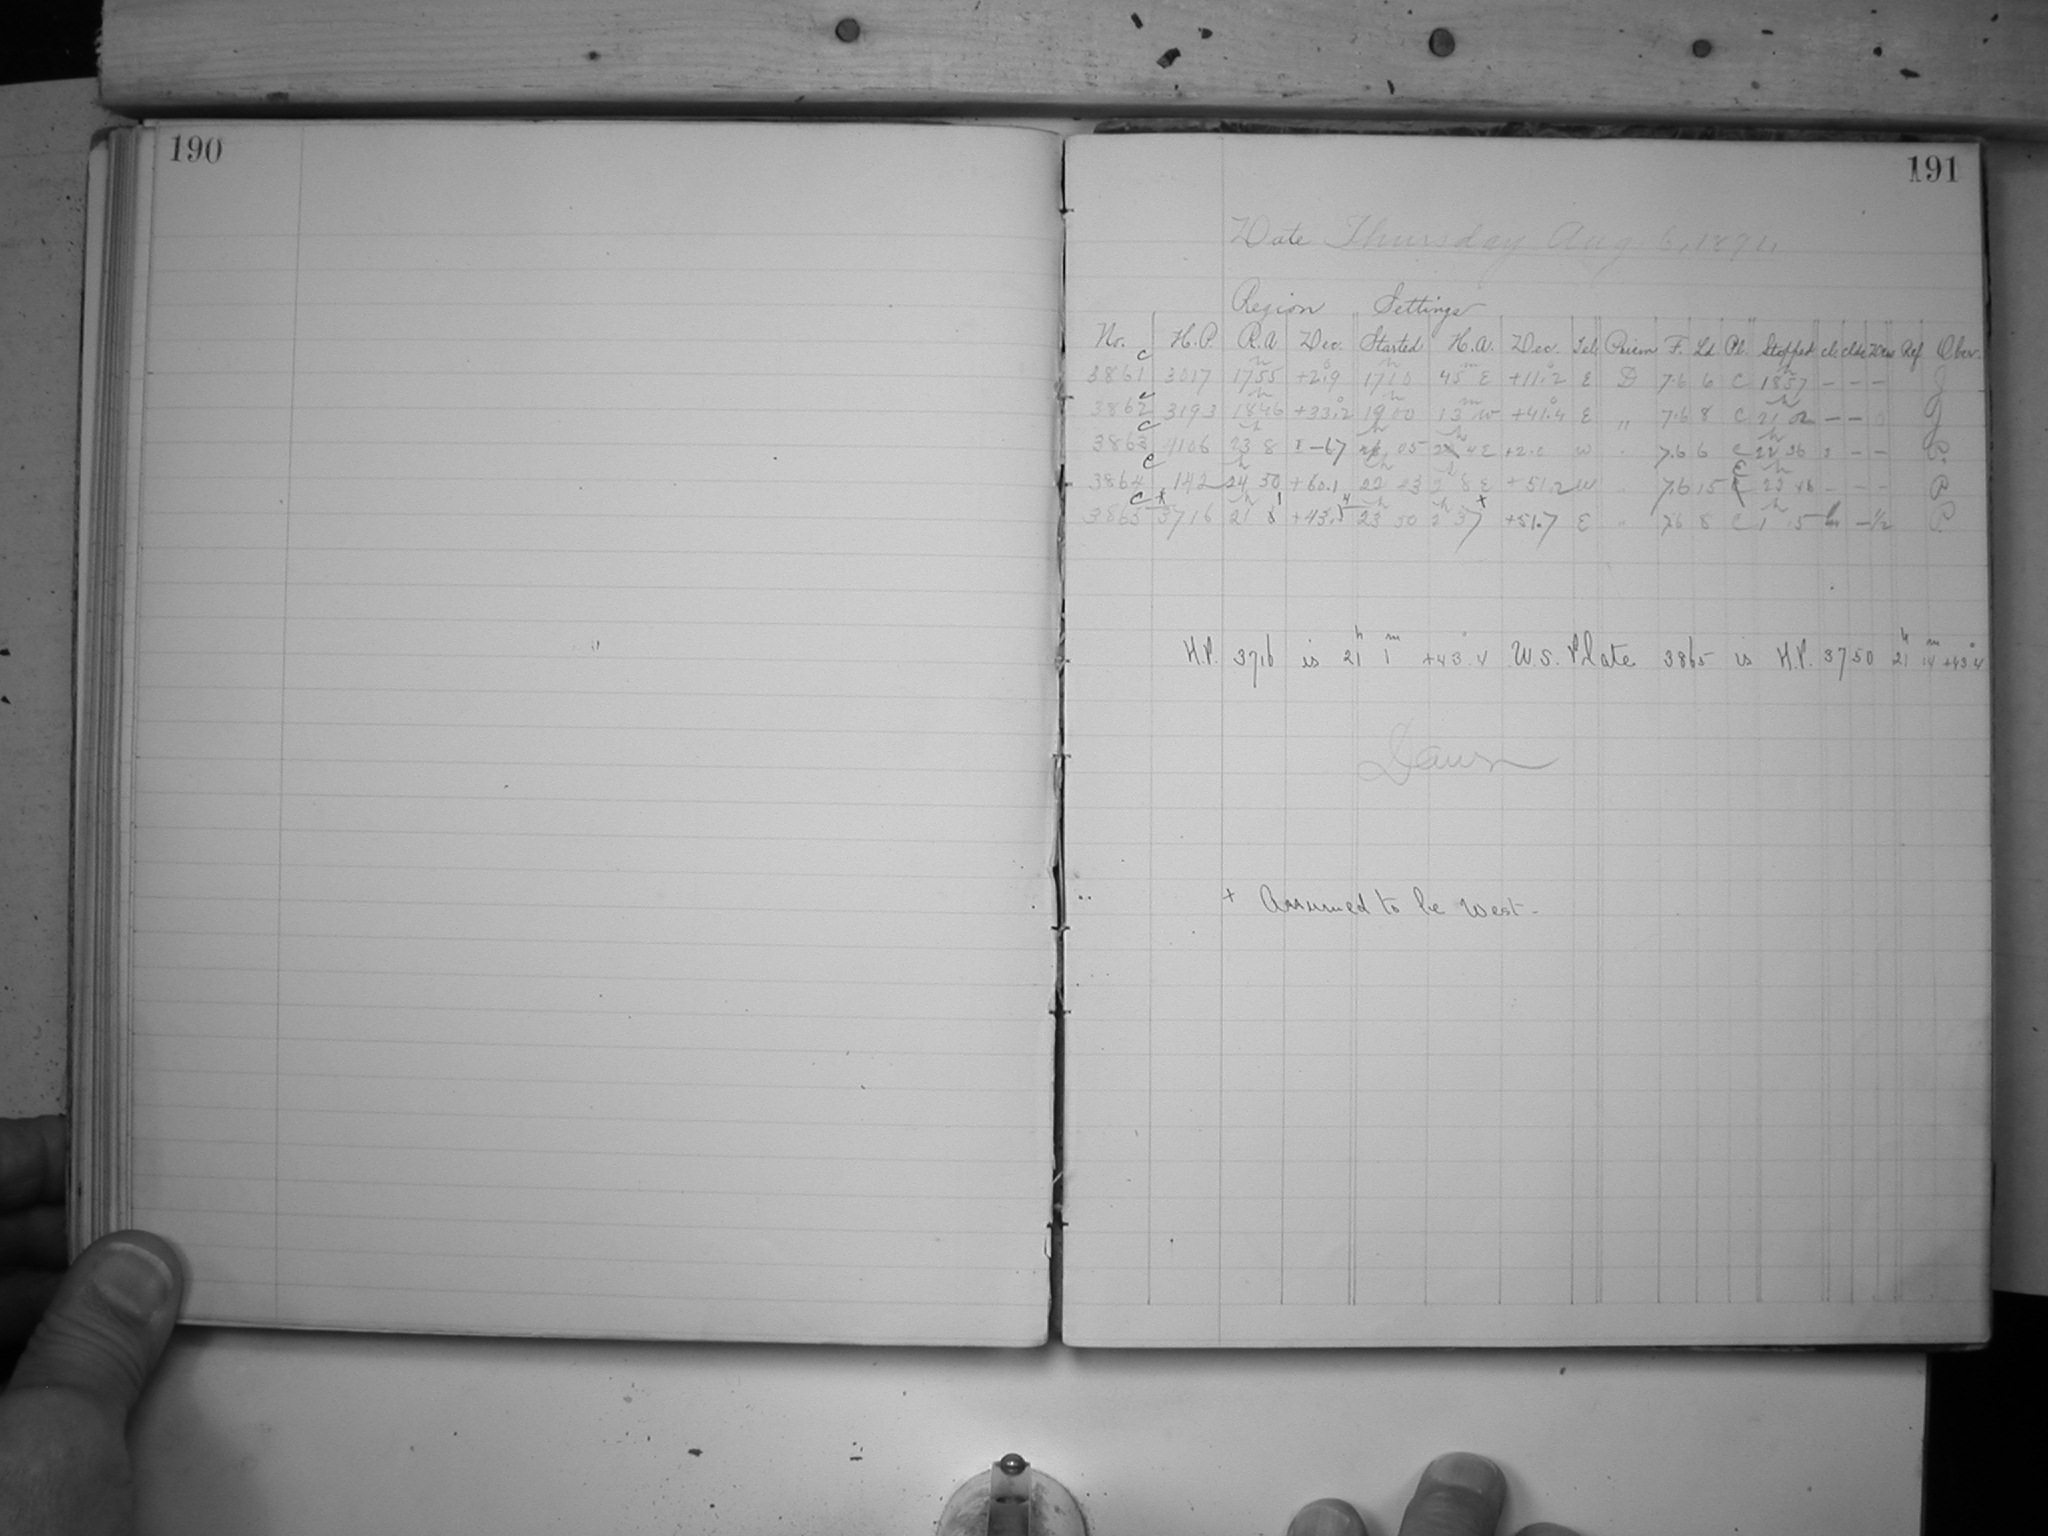 190
191
Date Thursday Aug 6, 1891
Region Settings
No. H.P. R.A Dec. Started H.A. Dec. Tel. Prism F. Ld Pl. Stopped cl. clds Dew Ref Obser.
3861 c 3017 17 55 +2.9 17 10 45 m E +11.2 E D 7.6 6 C 18 57 - - - J
3862 c 3193 18 46 +33.2 19 00 13 m W +41.4 E " 7.6 8 C 21 02 - - J
3863 c 4106 23 8 -6.7 05 4 E +2.0 W " 7.6 6 C 22 36 - - P.
3864 c 142 24 50 +60.1 22 23 2 8 E +51.2 W " 7.6 15 C 23 46 - - - P.
3865 c x 3716 21 1 +43.4 23 50 2 37 x +51.7 E " 7.6 8 C 1 15 - ½ P.
H.P. 3716 is 21 h 1 m +43°.4 W.S. Plate 3865 is H.P. 3750 21 h 14 m +43°.4
Dawn
+ Assumed to be West-